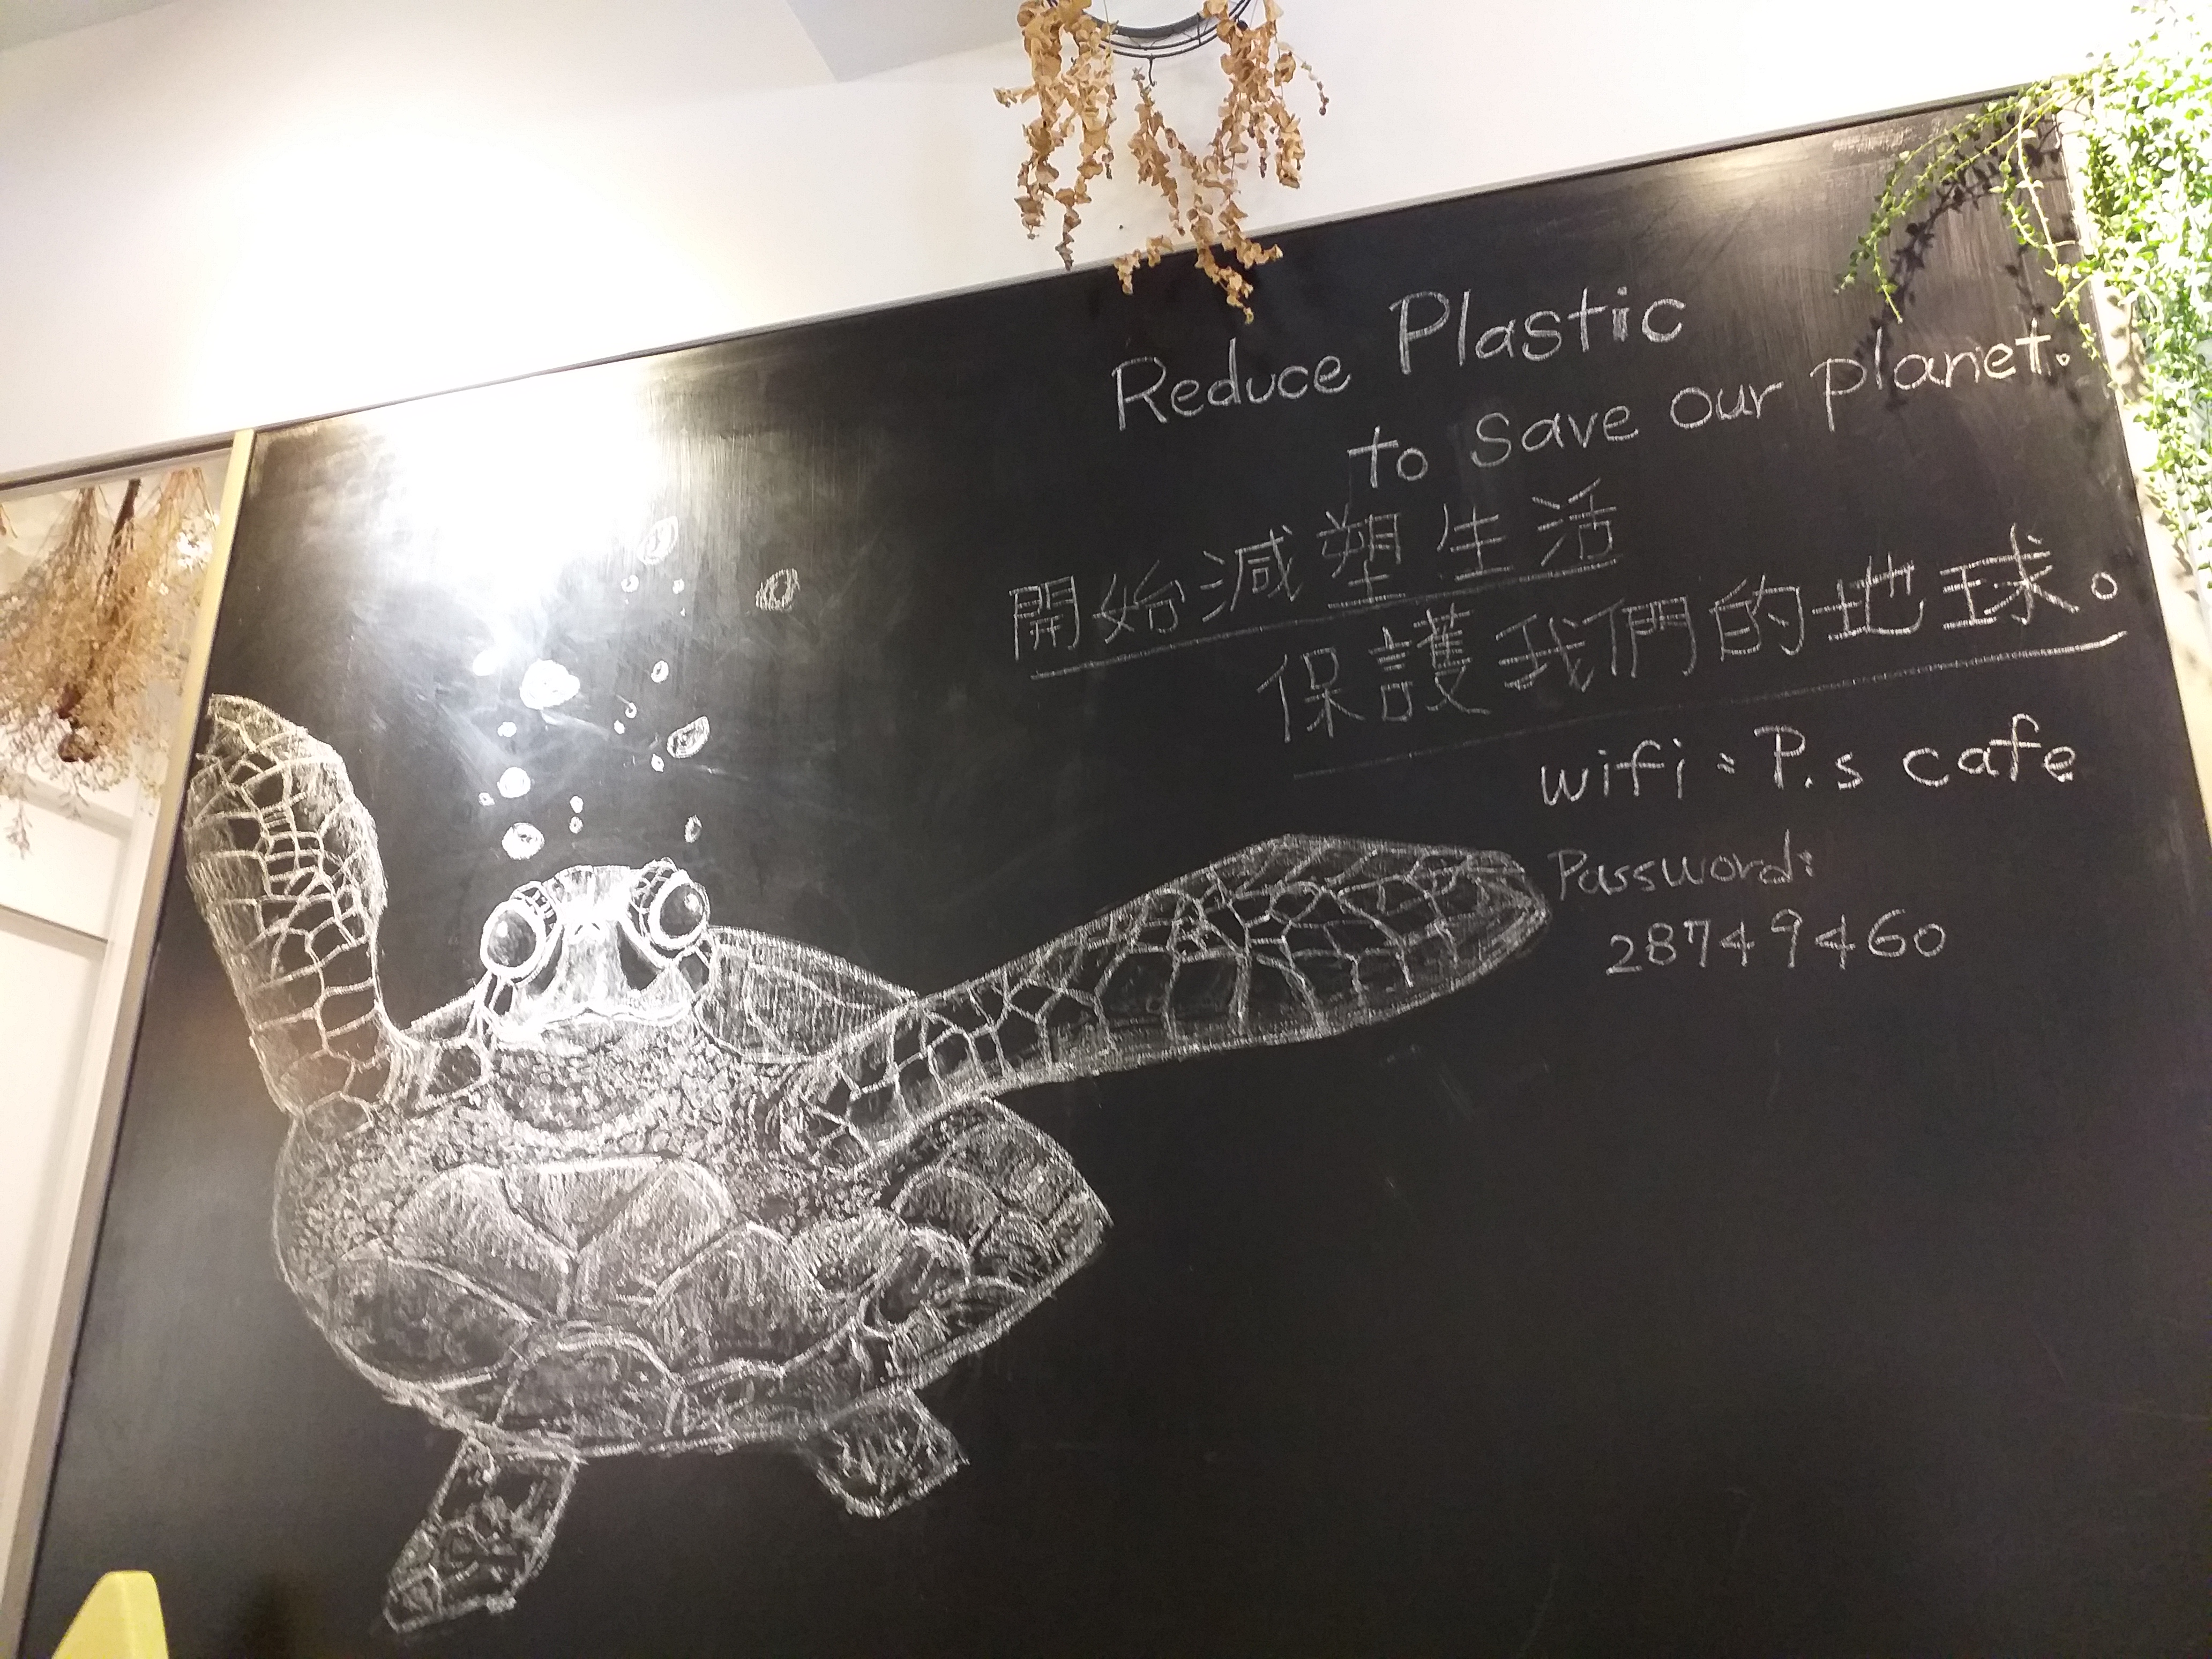 Reduce Plastic
to save our planet.
開始減塑生活
保護我們的地球。
wifi: P.s cafe
Password:
28749460